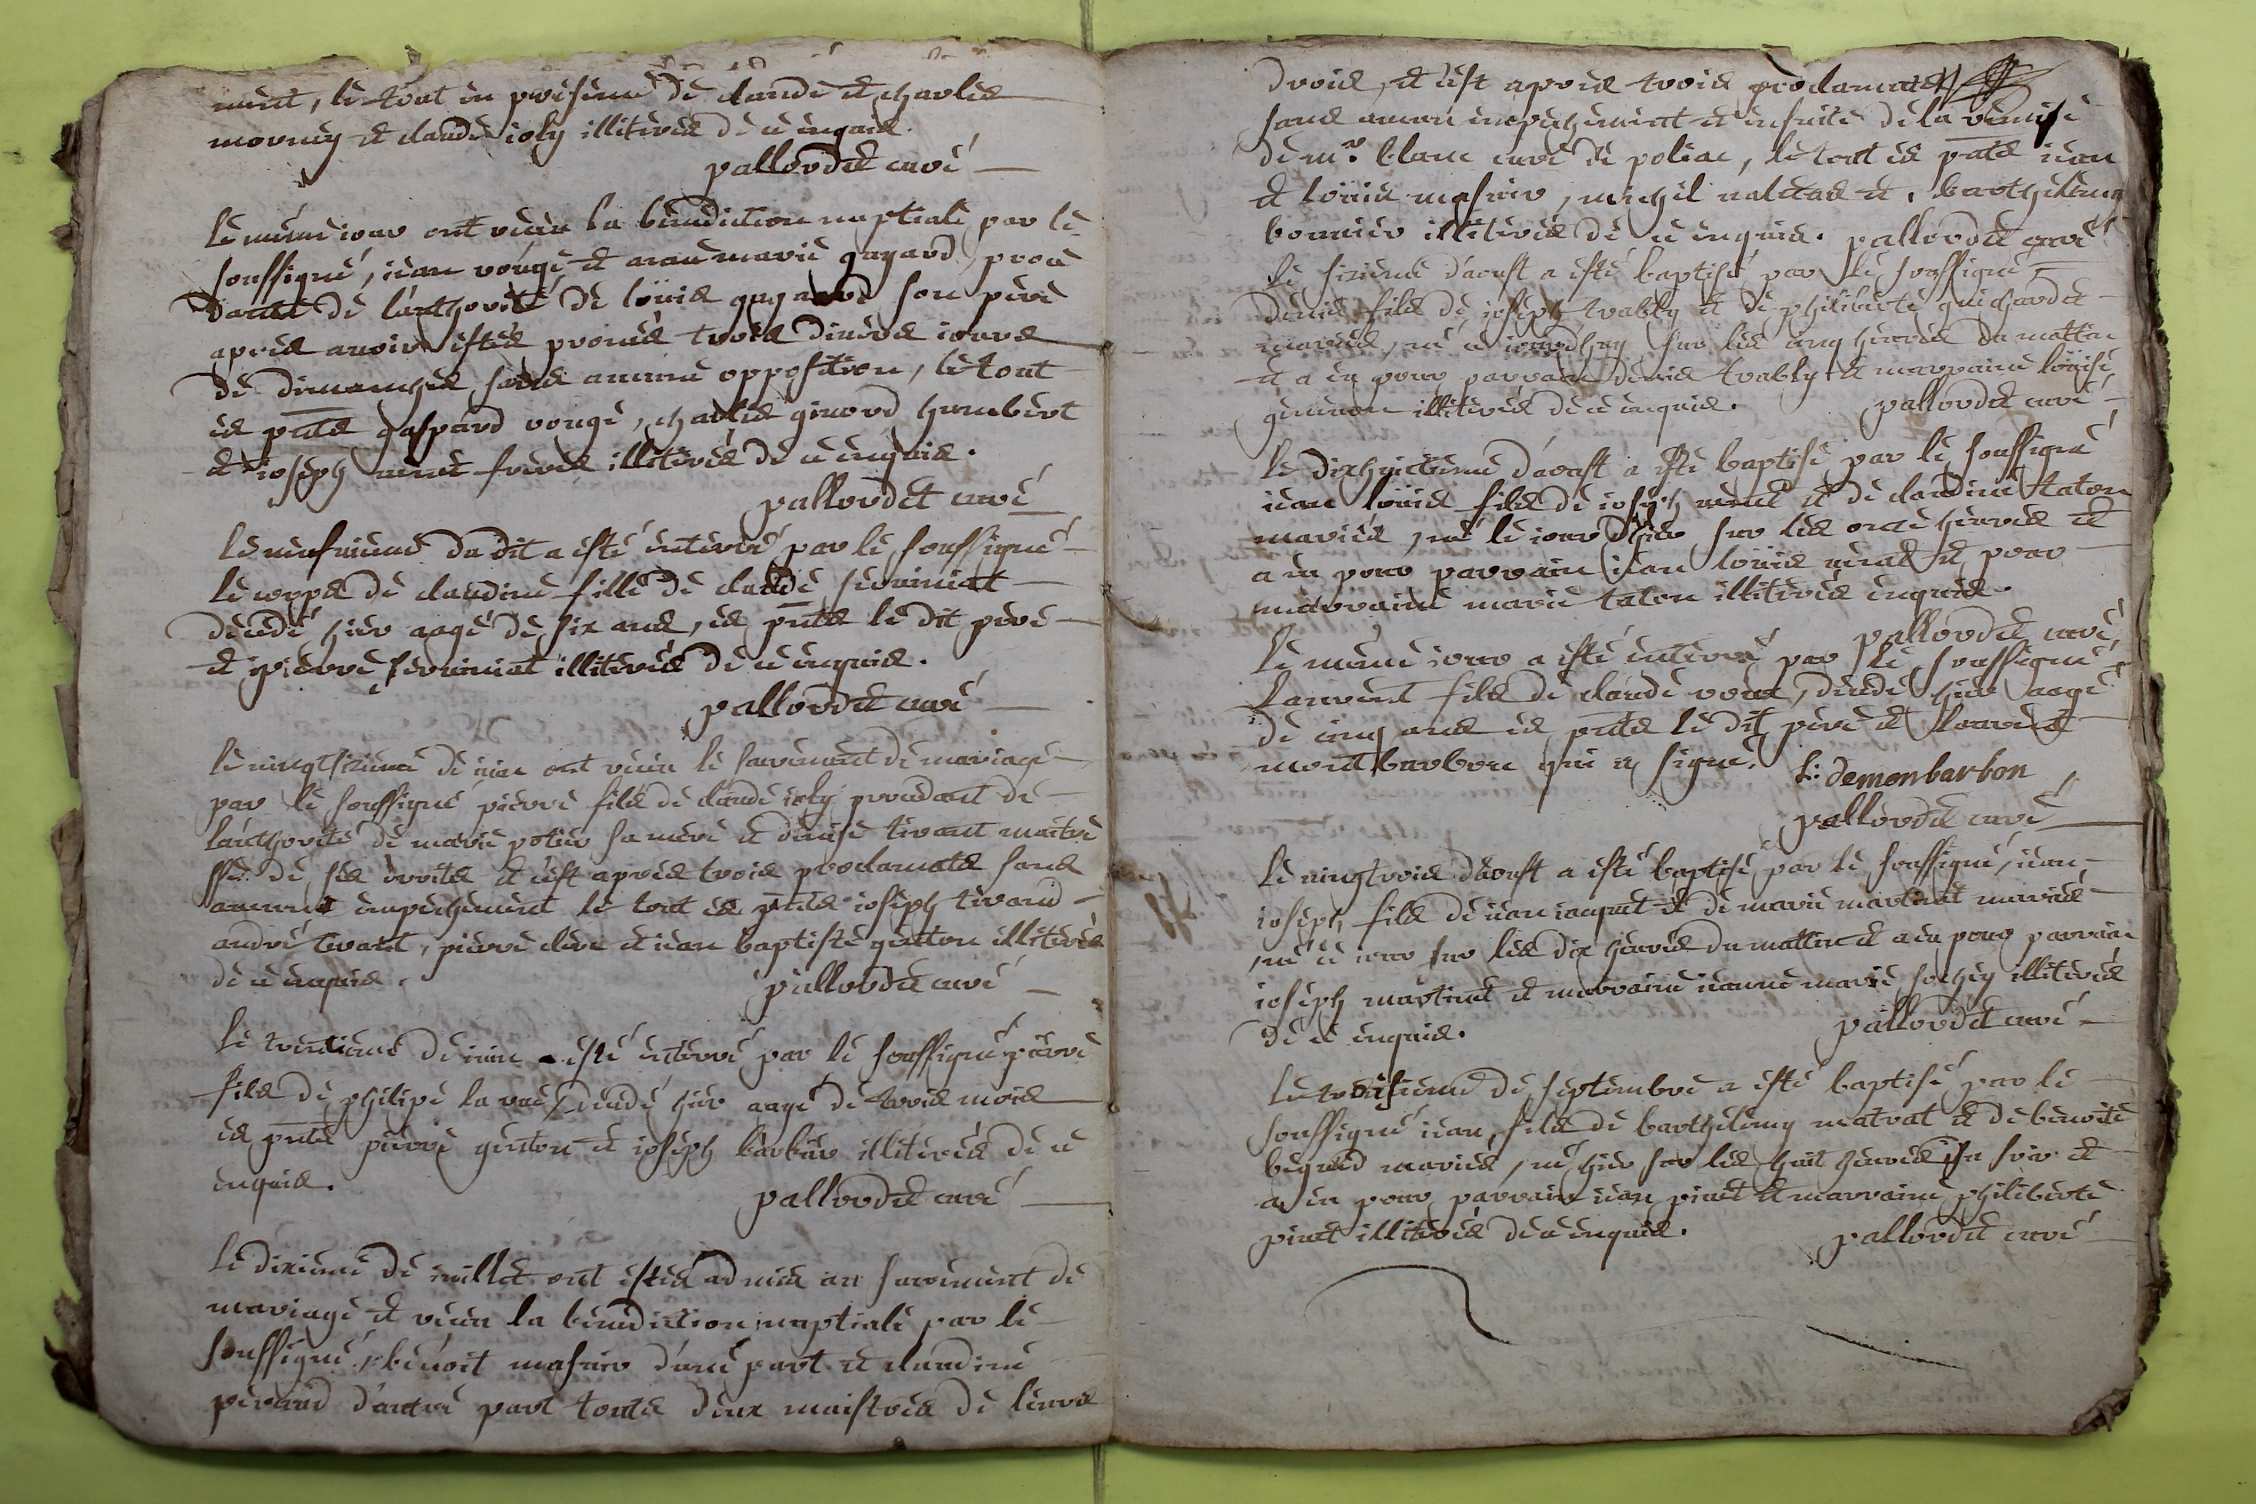 ment, le tout en presence de claude et charles
morney et claude ioly illiterés de ce enquis.
pallordet curé
le même iour ont receu la benediction nuptiale par le
soussigné, iean rougé et anne marie gagard, proce
dante de l'authorité de loüis gagard son pere
apres auoir estés pronés trois diuers iours
de dimanches sans aucune opposition, le tout
es pnts gaspard rougé, charles girord humbert
et ioseph freres illiterés de ce enquis.
pallordet curé
le neufuieme du dit a esté enterré par le soussigné
le corps de claudine fille de claude
decedé hier aagé de six ans, es pnts le dit pere
et pierre illiterés de ce enquis.
pallordet curé
le vingtsixieme de iuin ont receu le sacrement de mariage
par le soussigné pierre fils de claude ioly procedant de
l'authorité de marie potier sa mere et denise tivant maitre
sse de ses droits et c'est apres trois proclamats sans
aucune empechement le tout es pnts ioseph tivand
andré tivant, pierre clere et iean baptiste genton illiterés
de ce enquis.
pallordet curé
le trentieme de iuin a esté enterré par le soussigné pierre
fils de philipe la decedé hier aagé de trois mois
es pnts pierre genton et ioseph barbier illiterés de ce
enquis.
pallordet curé
le dixieme de iuillet ont estés admis au sacrement de
mariage et receu la benediction nuptiale par le
soussigné, benoit masuir d'une part et claudine
perand d'autre part touts deux maistres de leurs
droits, et c'est apres trois proclamats
sans aucun empechement et ensuite de la remise
de mr. blanc curé de poliac, le tout es pnts iean
et loüis masuir, michel et barthelemy
bonnier illiterés de ce enquis. pallordet curé
le sixieme d'aoust a esté baptisé par le soussigné
denis fils de ioseph trably et de philiberte guichardet
mariés, né ce iourdhuy sur les cinq heures du mattin
et a eu pour parrain denis trably et marraine loüise
genton illiterés de ce enquis. pallordet curé
le dixhuictieme d'aoust a esté baptisé par le soussigné
iean loüis fils de ioseph et de claudine taton
mariés, né le iour d'hier sur les onze heures et
a eu pour parrain iean loüis et pour
marraine marie taton illiterés enquis.
pallordet curé
le même iour a esté enterré par le soussigné
laurent fils de claude decedé hier aagé
de cinq ans es pnts le dit pere et laurent
montbarbon qui a signé. L: demonbarbon
pallordet curé
le vingtrois d'aoust a esté baptisé par le soussigné, iean
ioseph fils de iean iaquet et de marie martinet mariés
né ce iour sur les dix heures du mattin et a eu pour parrain
ioseph martinet et marraine ieanne marie sochey illiterés
de ce enquis. pallordet curé
le troisieme de septembre a esté baptisé par le
soussigné iean, fils de barthelemy matrat et de benoite
begand mariés, né hier sur les huit heures du soir et
a eu pour parrain iean pinet et marraine philiberte
pinet illiterés de ce enquis. pallordet curé